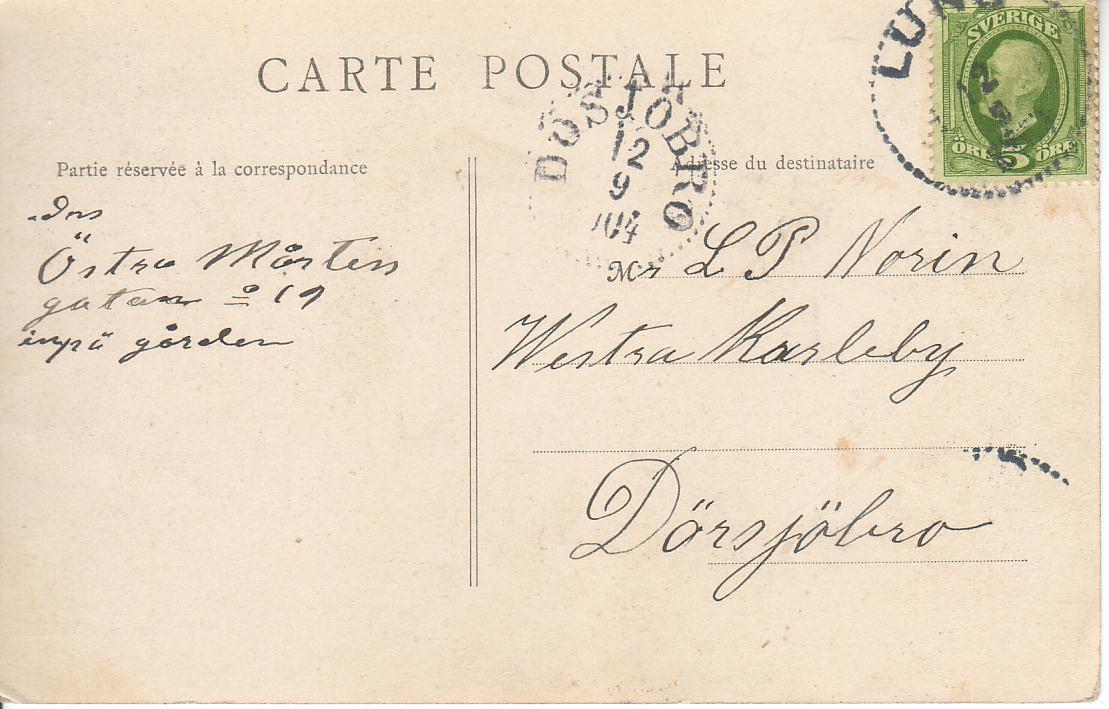 CARTE POSTALE
LUND
SVERIGE
ÖRE 5 ÖRE
DÖSJÖBRO
12
9
104
Partie réservée à la correspondance
Adresse du destinataire
Östra Mårtens
gatan 19
inpå gården
Mr L P Norin
Westra Karleby
Dörsjöbro